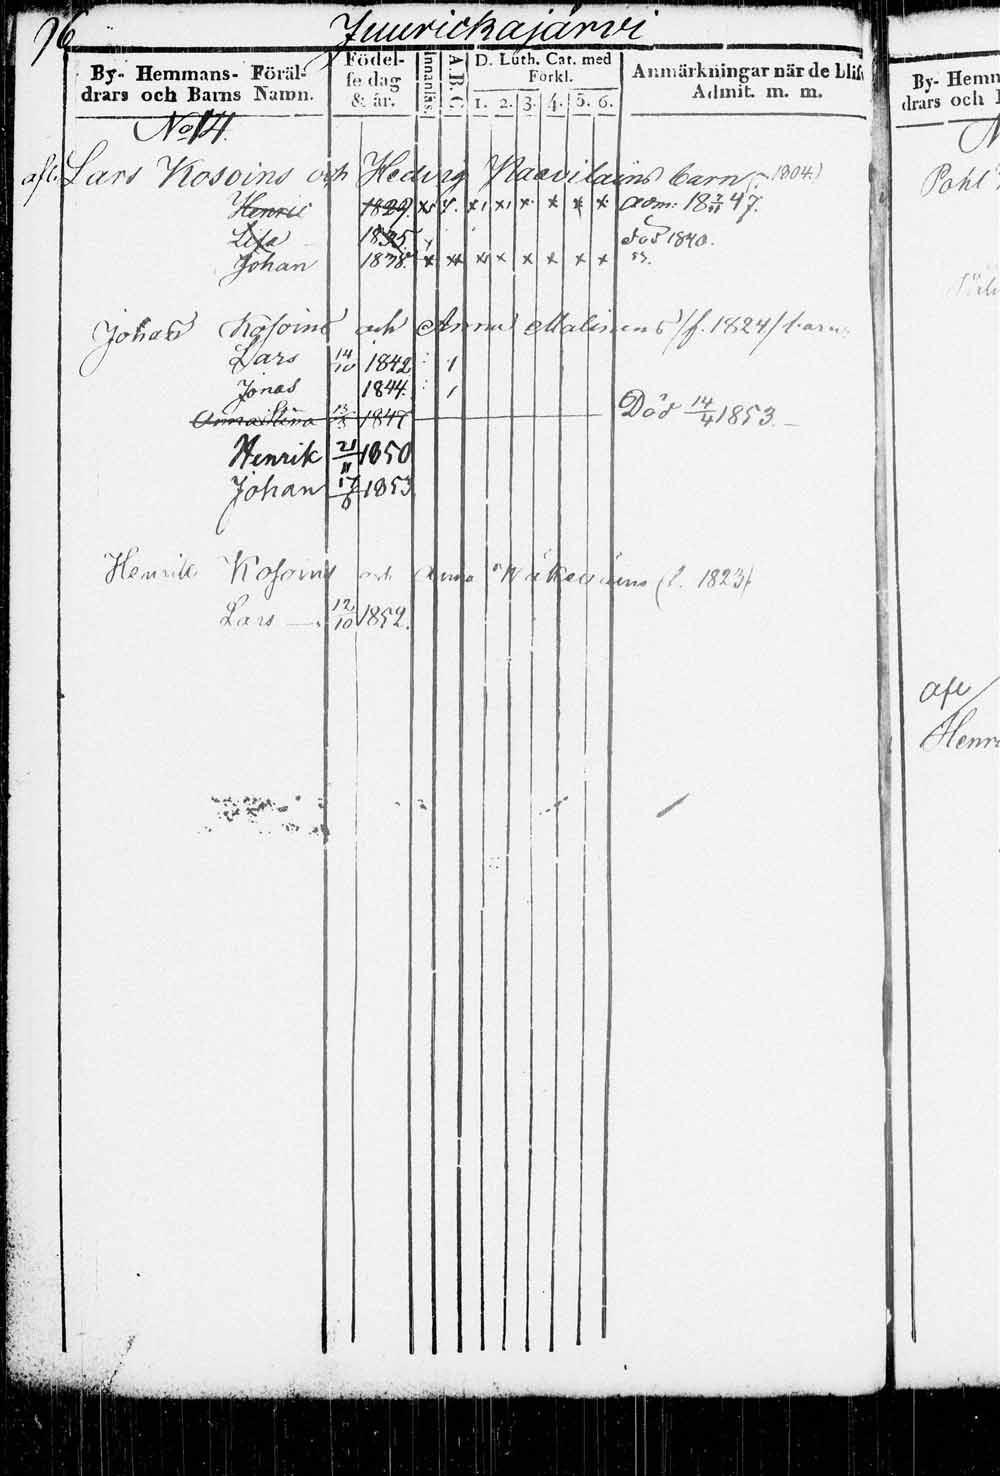 96 Juurickajärvi
By- Hemmans- Föräl-
drars och Barns Namn.
Födel-
se dag
& år.
Innanläs.
A.B.C.
D. Luth. Cat. med
Förkl.
1. 2. 3. 4. 5. 6.
Anmärkningar när de blif
Admit. m. m.
No 14.
afl. Lars Kosoins och Hedvig Raavilains barn (1804)
Henric 1829. x x x x x x x x Adm: 18 47.
Lisa 1835. död 1840.
Johan 1838. x x x x x x x x 53.
Johan Kosoins och Anna Malinens /f. 1824/ barn
Lars 14/10 1842 1
Jonas 1844. 1
Anna Stina 1847 Död 14/4 1853.
Henrik 21/11 1850
Johan 17/6 1853
Henrik Kosoins och Anna Wäkeväins (f. 1823)
Lars 12/10 1852.
By- Hemm
drars och
N
Pohl
afl
Henri